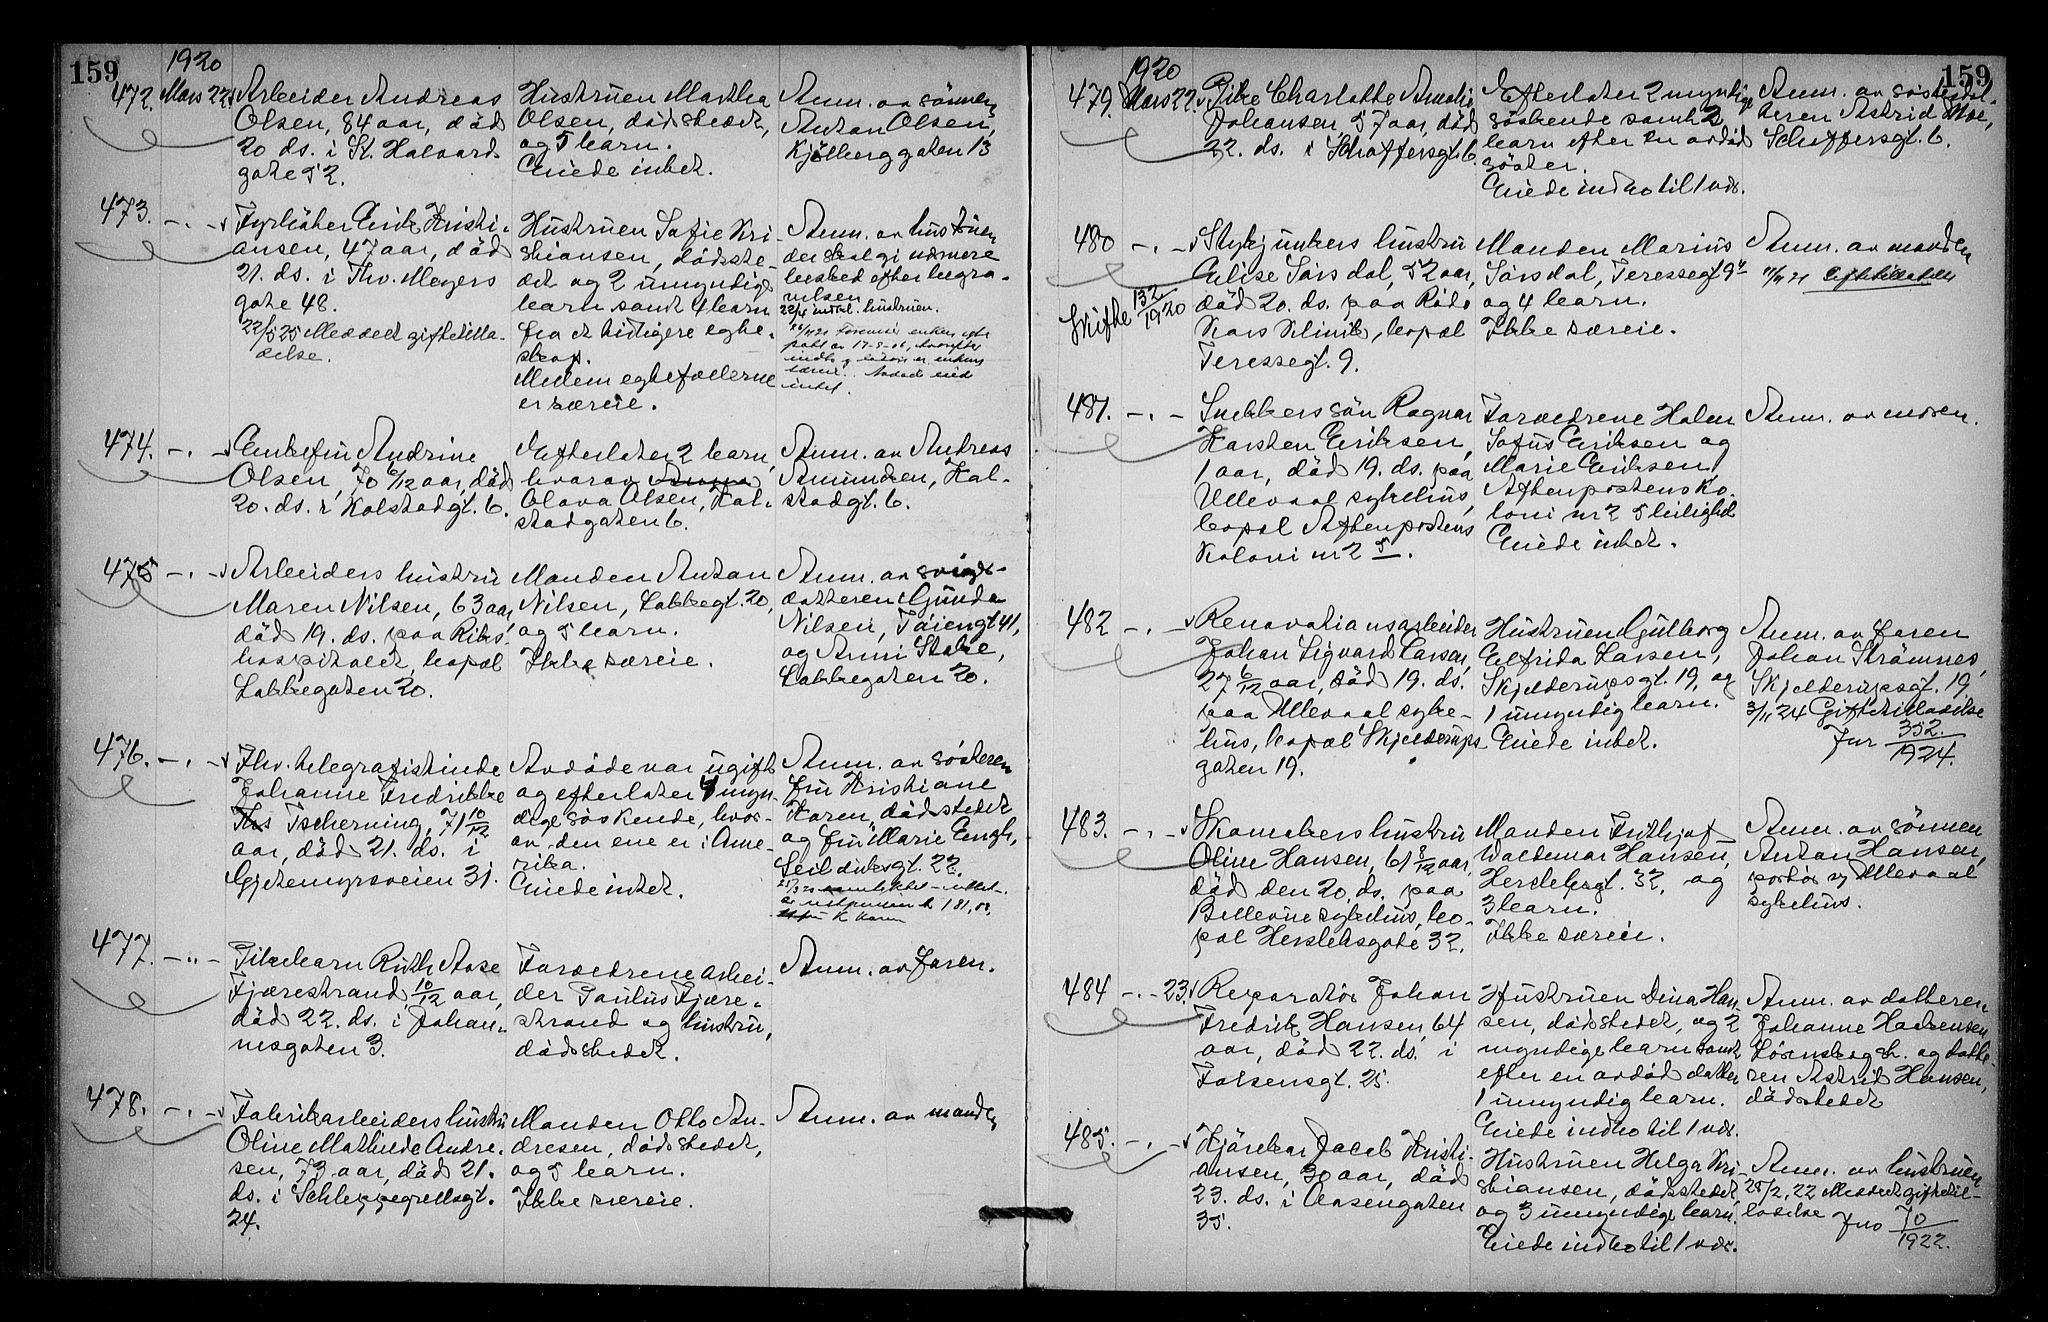 159
1920
472. Mars 22. Arbeider Andreas
Olsen, 84 aar, död
20 ds. i St. Halvards
gate 52.
Hustruen Martha
Olsen, dödsstedet,
og 5 barn.
Eiede intet.
Anm. av sönnen
Anton Olsen,
Kjölberggaten 13
473. -"- Fyrböter Eirik Kristi-
ansen, 47 aar, död
21. ds. i Thv. Meyers
gate 48.
22/5 25 Meddelt giftetilla-
delse.
Hustruen Sofie Kri-
stiansen, dödsste-
det og 2 umyndige
barn samt 4 barn
fra et tidligere egte-
skap.
Mellem egtefællerne
er særeie.
Anm. av hustruen
der skal gi nærmere
besked efter begra-
velsen
22/4 indkal. hustruen.
474. -"- Enkefru Andrine
Olsen, 70 6/12 aar, död
20. ds. i Kolstadgt. 6.
Efterlater 2 barn,
hvorav Anna
Olava Olsen, Kol-
stadgaten 6.
Anm. av Andreas
Amundsen, Kol-
stadgt. 6.
475 -"- Arbeiders hustru
Maren Nilsen, 63 aar,
död 19. ds. paa Riks-
hospitalet, bopæl
Lakkegaten 20.
Manden Anton
Nilsen, Lakkegt. 20,
og 5 barn.
Ikke særeie.
Anm. av sviger-
datteren Gunda
Nilsen, Töiengt 41,
og Anni Stake,
Lakkegaten 20.
476. -"- Fhv. telegrafistinde
Johanne Fredrikke
Ths Tscherning, 71 10/12
aar, död 21. ds. i
Gjetemyrsveien 31.
Avdöde var ugift
og efterlater 4 myn-
dige söskende, hvor-
av den ene er i Ame-
rika.
Eiede intet.
Anm. av sösteren
fru Kristiane
Karen, dödsstedet
og fru Marie Engh,
Seilduksgt. 22.
477. -"- Pikebarn Ruth Aase
Fjærestrand, 10/12 aar,
död 22. ds. i Johan-
nesgaten 3.
Forældrene arbei-
der Paulus Fjære-
strand og hustru,
dödsstedet.
Anm. av faren.
478. -"- Fabrikarbeiders hustru
Oline Mathilde Andre-
sen, 73 aar, död 21.
ds. i Schleppegrellsgt.
24.
Manden Otto An-
dresen, dödsstedet,
og 5 barn.
Ikke særeie.
Anm. av manden
159
1920
479. Mars 22. Pike Charlotte Amalie
Johansen, 57 aar, död
22. ds. i Schaffersgt. 6.
Efterlater 2 myndige
söskende samt 2
barn efter en avdöd
söster.
Eiede indbo til 1 vds.
Anm. av söskendebar-
neren Astrid Moe,
Schaffersgt. 6.
480 -"- Stykjunkers hustru
Elise Sörsdal, 52 aar,
död 20. ds. paa Röde
Kors Klinik, bopæl
Teressegt. 9.
Skifte 132/1920
Manden Marius
Sörsdal, Teressegt 9
og 4 barn.
Ikke særeie.
Anm. av manden
Giftetilladelse
481. -"- Snekkers sön Ragnar
Karsten Eriksen,
1 aar, död 19. ds. paa
Ullevaal sykehus,
bopæl Aftenpostens
Koloni nr 2 5.
Forældrene Holm
Sofus Eriksen og
Marie Eriksen,
Aftenpostens Ko-
loni nr 2 5 leilighet
Eiede intet.
Anm. av moren.
482 -"- Renovationsarbeider
Johan Sigvard Larsen,
27 6/12 aar, död 19. ds.
paa Ullevaal syke-
hus, bopæl Skjelderups
gaten 19.
Hustruen Gulborg
Elfrida Larsen,
Skjelderupsgt. 19, og
1 umyndig barn.
Eiede intet.
Anm. av faren
Johan Strömnes,
Skjelderupsgt. 19,
3/11 24 Giftetilladelse
Jnr 352./1924.
483. -"- Skomakers hustru
Oline Hansen, 61 8/12 aar,
död den 20. ds. paa
Bellevue sykehus, bo-
pæl Herslebsgate 32.
Manden Frithjof
Waldemar Hansen,
Herslebsgt. 32, og
3 barn.
Ikke særeie.
Anm. av sönnen
Anton Hansen,
portör ved Ullevaal
sykehus.
484 -"- 23. Reparatör Johan
Fredrik Hansen, 64
aar, död 22. ds. i
Falsensgt. 25.
Hustruen Dina Han-
sen, dödsstedet, og 2
myndige barn samt
efter en avdöd datter
1 umyndig barn.
Eiede indbo til 1 vds.
Anm. av datteren
Johanne Haakensen,
og datte-
ren Astrid Hansen,
dödsstedet
485. -"- Kjörekar Jacob Kristi-
ansen, 30 aar, död
23. ds. i Aasengaten
35.
Hustruen Helga Kri-
stiansen, dödsstedet,
og 3 umyndige barn.
Eiede indbo til 1 vds.
Anm. av hustruen
25/2. 22 Meddelt giftetil-
ladelse Jno 70/1922.